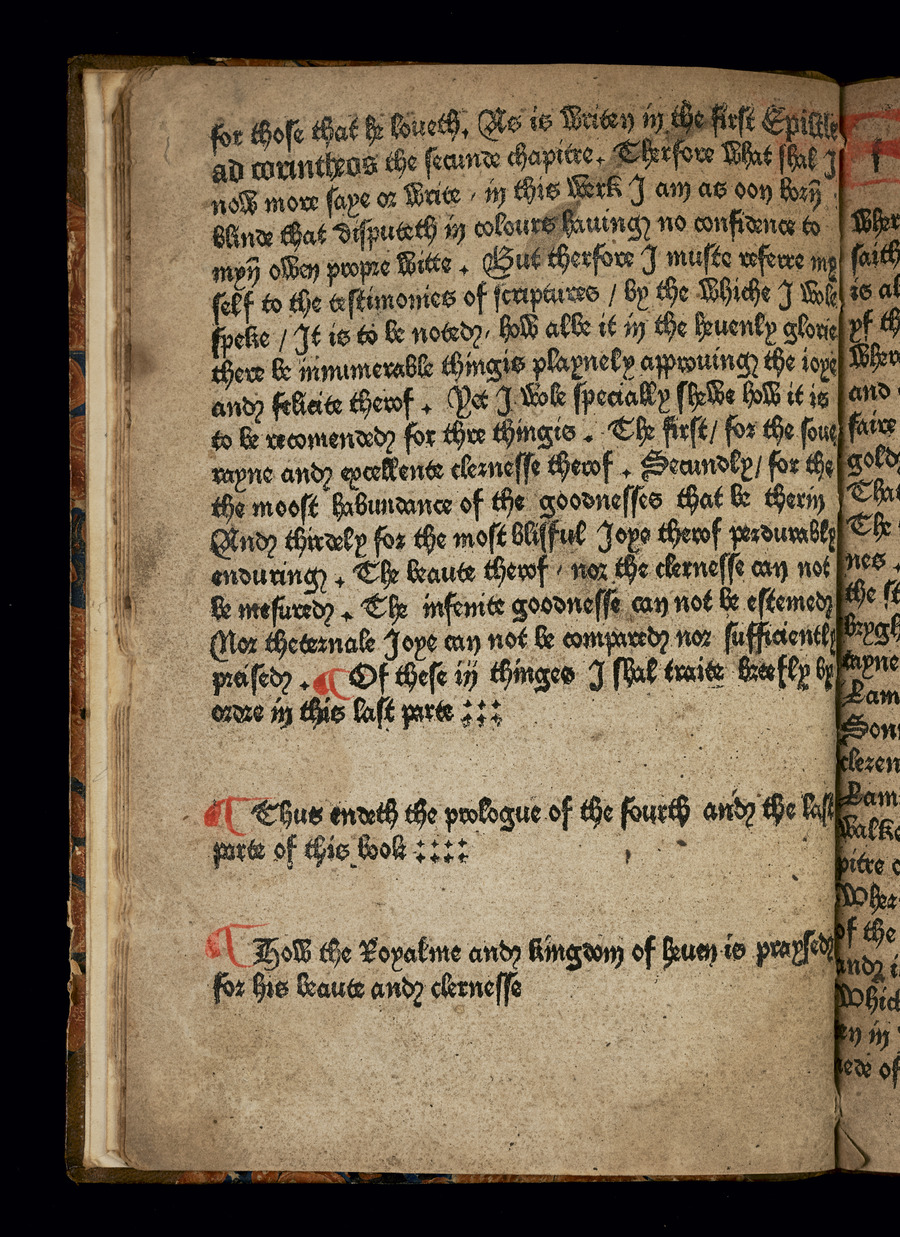 for those that he loueth. As is writen in the first Epistle
ad corintheos the secunde chapitre. Therfore what shal I
now more saye or write / in this werk I am as oon born̄
blinde that disputeth in colours hauing no confidence to
myn̄ owen propre witte . But therfore I muste referre my
self to the testimonies of scriptures / by the whiche I wole
speke / It is to be noted / how albe it in the heuenly glorie
there be innumerable thingis playnely approuing the ioye
and felicite therof . Yet I wole specially shewe how it is
to be recomended for thre thingis . The first / for the soue
rayne and excellente clernesse therof . Secundly / for the
the moost habundance of the goodnesses that be therin
And thirdely for the most blissful Joye therof perdurably
enduring . The beaute therof / nor the clernesse can not
be mesured . The infenite goodnesse can not be estemed
Nor theternale Joye can not be compared nor sufficiently
preised . ¶ Of these iij thinges I shal traite breefly by
ordre in this last parte
¶ Thus endeth the prologue of the fourth and the last
parte of this book
¶ How the Royalme and kingdom of heuen is praysed
for his beaute and clernesse
wher
saith
is al
yf th
wher
and
faire
gold
That
The
nes .
the st
brygh
tayne
Lam
Sonn
cleren
Lam
walke
pitre
Wher
of the
and i
Which
en in
ede of